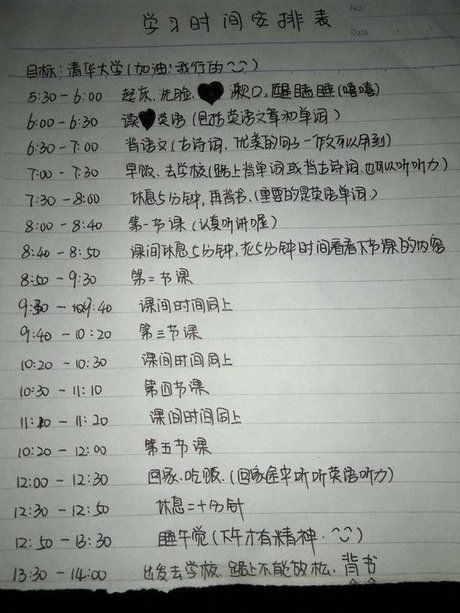 No.
Date.
学习时间安排表
目标:清华大学(加油!我行的)
5:30-6:00 起床、洗脸、漱口、醒瞌睡(嘻嘻)
6:00-6:30 读英语(包括英语文章和单词)
6:30-7:00 背语文(古诗词、优美的句子-作文可以用到)
7:00-7:30 早饭、去学校(路上背单词或背古诗词、也可以听听力)
7:30-8:00 休息5分钟,再背书、(重要的是英语单词)
8:00-8:40 第一节课(认真听讲喔)
8:40-8:50 课间休息5分钟,花5分钟时间看看下节课的内容
8:50-9:30 第二节课
9:30-9:40 课间时间同上
9:40-10:20 第三节课
10:20-10:30 课间时间同上
10:30-11:10 第四节课
11:10-11:20 课间时间同上
10:20-12:00 第五节课
12:00-12:30 回家、吃饭、(回家途中听听英语听力)
12:30-12:50 休息二十分针
12:50-13:30 睡午觉(下午才有精神.)
13:30-14:00 出发去学校、路上不能放松、背书